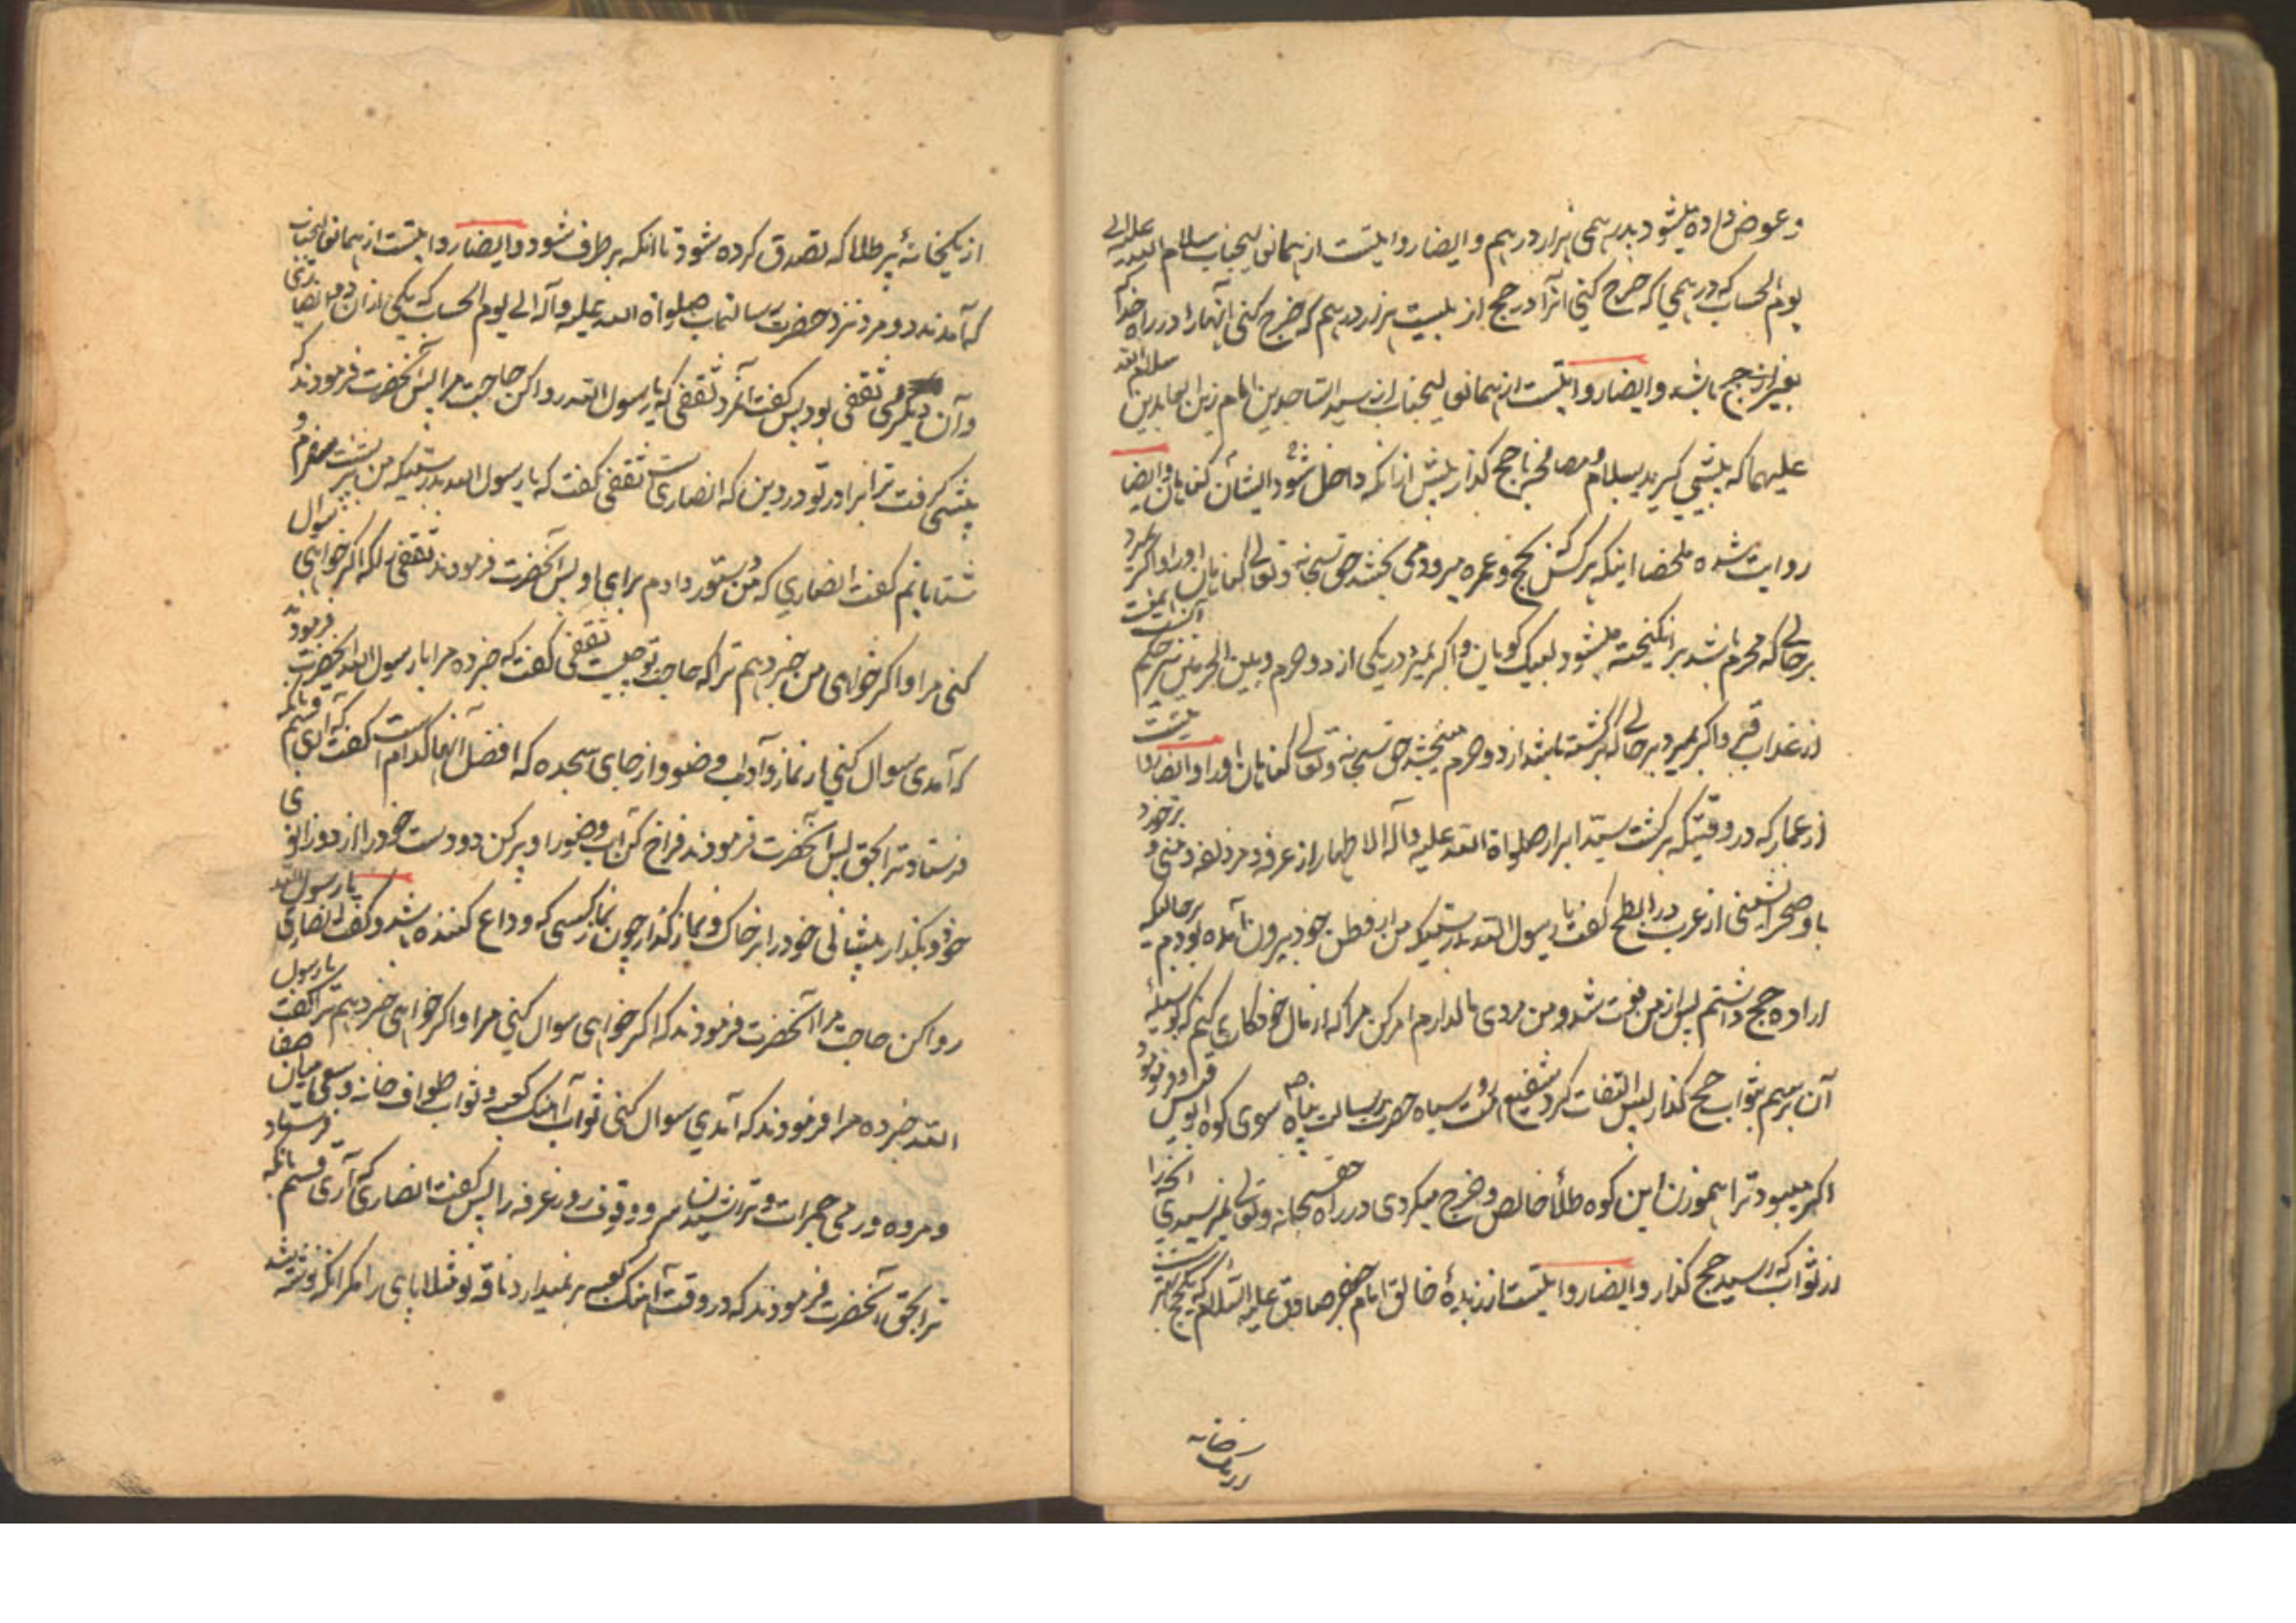 و عوض داده میشود بدرهمی هزار درهم و ایضا روایتست از همانعالیجناب سلام الله علیه الی
یوم الحساب که درهمی که خرج کنی آنرا در حج از بیست هزار درهم که خرج کنی آنهارا در راه خدا که
بغیر از حج باشد و ایضا روایتست از همانعالیجناب از سید الساجدین امام زین العابدین سلام الله
علیهما که پیشی گیرید بسلام و مصافحه با حج گذار پیش از آنکه داخل شود ایشان گناهان و ایضا
روایت شده ملخصا اینکه هر کس که بحج و عمره میرود می بخشد حق سبحانه و تعالی گناهان اورا و اگر میرد
بر حالی که محرم باشد بر انگیخته میشود لبیک گویان و اگر بمیرد در یکی از دو حرم و بین الحرمین
از عذاب قبر و اگر بمیرد بر حالی که برگشته باشد از دو حرم میبخشد حق سبحانه و تعالی گناهان اورا و ایضا روایتست
از عمار که در وقتیکه برگشت سید ابرار صلواة الله علیه و آله الاطهار از عرفه و مزدلفه و منی و برخورد
باو صحرا نشینی از عرب در ابطح گفت یا رسول الله بدرستیکه من از وطن خود بیرون آمده بودم برحالیکه
اراده حج داشتم پس از من فوت شد و من مردی مالدارم امر کن مرا که از مال خود کاری کنم که بوسیلهٔ
آن برسم بثواب حج گذار پس التفات کرد شفیع امت رو سیاه حضرت رسالت پناه سوی کوه ابوقبیس و فرمود
اگر میبود ترا بموزن این کوه طلأ خالص و خرج میکردی در راه حق سبحانه و تعالی نمیرسیدی آنچه را
از ثواب که رسید حج گذار و ایضا روایتست از زبدهٔ خالق امام جعفر صادق علیه السلام که یکحج بهتر است
از یکخانه
از یکخانهٔ پر طلا که تصدق کرده شود تا انکه بر طرف شود و ایضا روایتست از همانعالیجناب
که آمدند دو مرد نزد حضرت رسالتماب صلواة الله علیه و آله الی یوم الحساب که یکی از آن دو انصاری
و آن دیگری ثقفی بود پس گفت آنمرد ثقفی که یا رسول الله روا کن حاجت مرا پس آنحضرت فرمودند که
پیشی گرفت ترا برادر تو در دین که انصاریست ثقفی گفت که یا رسول الله بدرستیکه من بر پشت سفرم و
شتابانم گفت انصاری که من دستور دادم برای او پس آنحضرت فرمودند ثقفی را که اگر خواهی سوال
کنی مرا و اگر خواهی من خبر دهم ترا که حاجت تو چیست ثقفی گفت که خبر ده مرا یا رسول الله آنحضرت فرمود
که آمدی سوال کنی از نماز و آداب وضو و از جای سجده که افضل آنها کدام است گفت که آری قسم بآنکه
فرستاد ترا بحق پس آنحضرت فرمودند فراخ کن آب وضو را و پر کن دو دست خود را از دو زانوی
خود و بگذار پیشانی خود را بر خاک و نماز گذار چون نماز کسی که وداع کننده باشد و گفت انصاری یا رسول الله
روا کن حاجت مرا آنحضرت فرمودند که اگر خواهی سوال کنی مرا و اگر خواهی خبر دهم ترا گفت یا رسول
الله خبر ده مرا فرمودند که آمدی سوال کنی ثواب آهنگ کعبه و ثواب طواف خانه و سعی میان صفا
و مروه و رمی جمرات و تراشیدن سر و وقوف روز عرفه را پس گفت انصاری که آری قسم بانکه فرستاد
ترا بحق آنحضرت فرمودند که در وقت آهنگ کعبه بر نمیدارد ناقه تو مثلا پای را مگر انکه نوشته شد